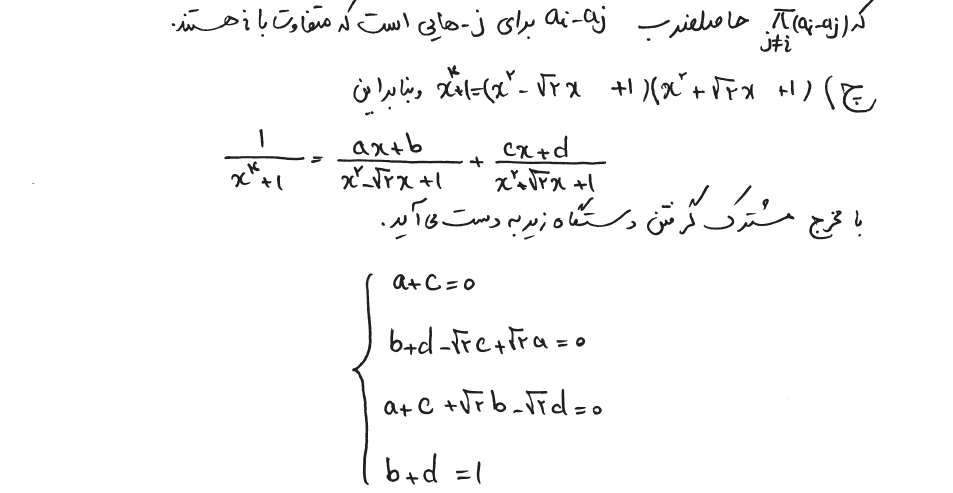 که ∏_{j≠i}(aᵢ-aⱼ) حاصلضرب aᵢ-aⱼ برای j-هایی است که متفاوت با i هستند.
ج) x⁴+۱=(x²-√۲x +۱)(x²+√۲x +۱) وبنابراین
1/(x⁴+1) = (ax+b)/(x²-√۲x+1) + (cx+d)/(x²+√۲x+1)
با مخرج مشترک گرفتن دستگاه زیر به دست می‌آید.
a+c=0
b+d-√۲c+√۲a=0
a+c+√۲b-√۲d=0
b+d=1